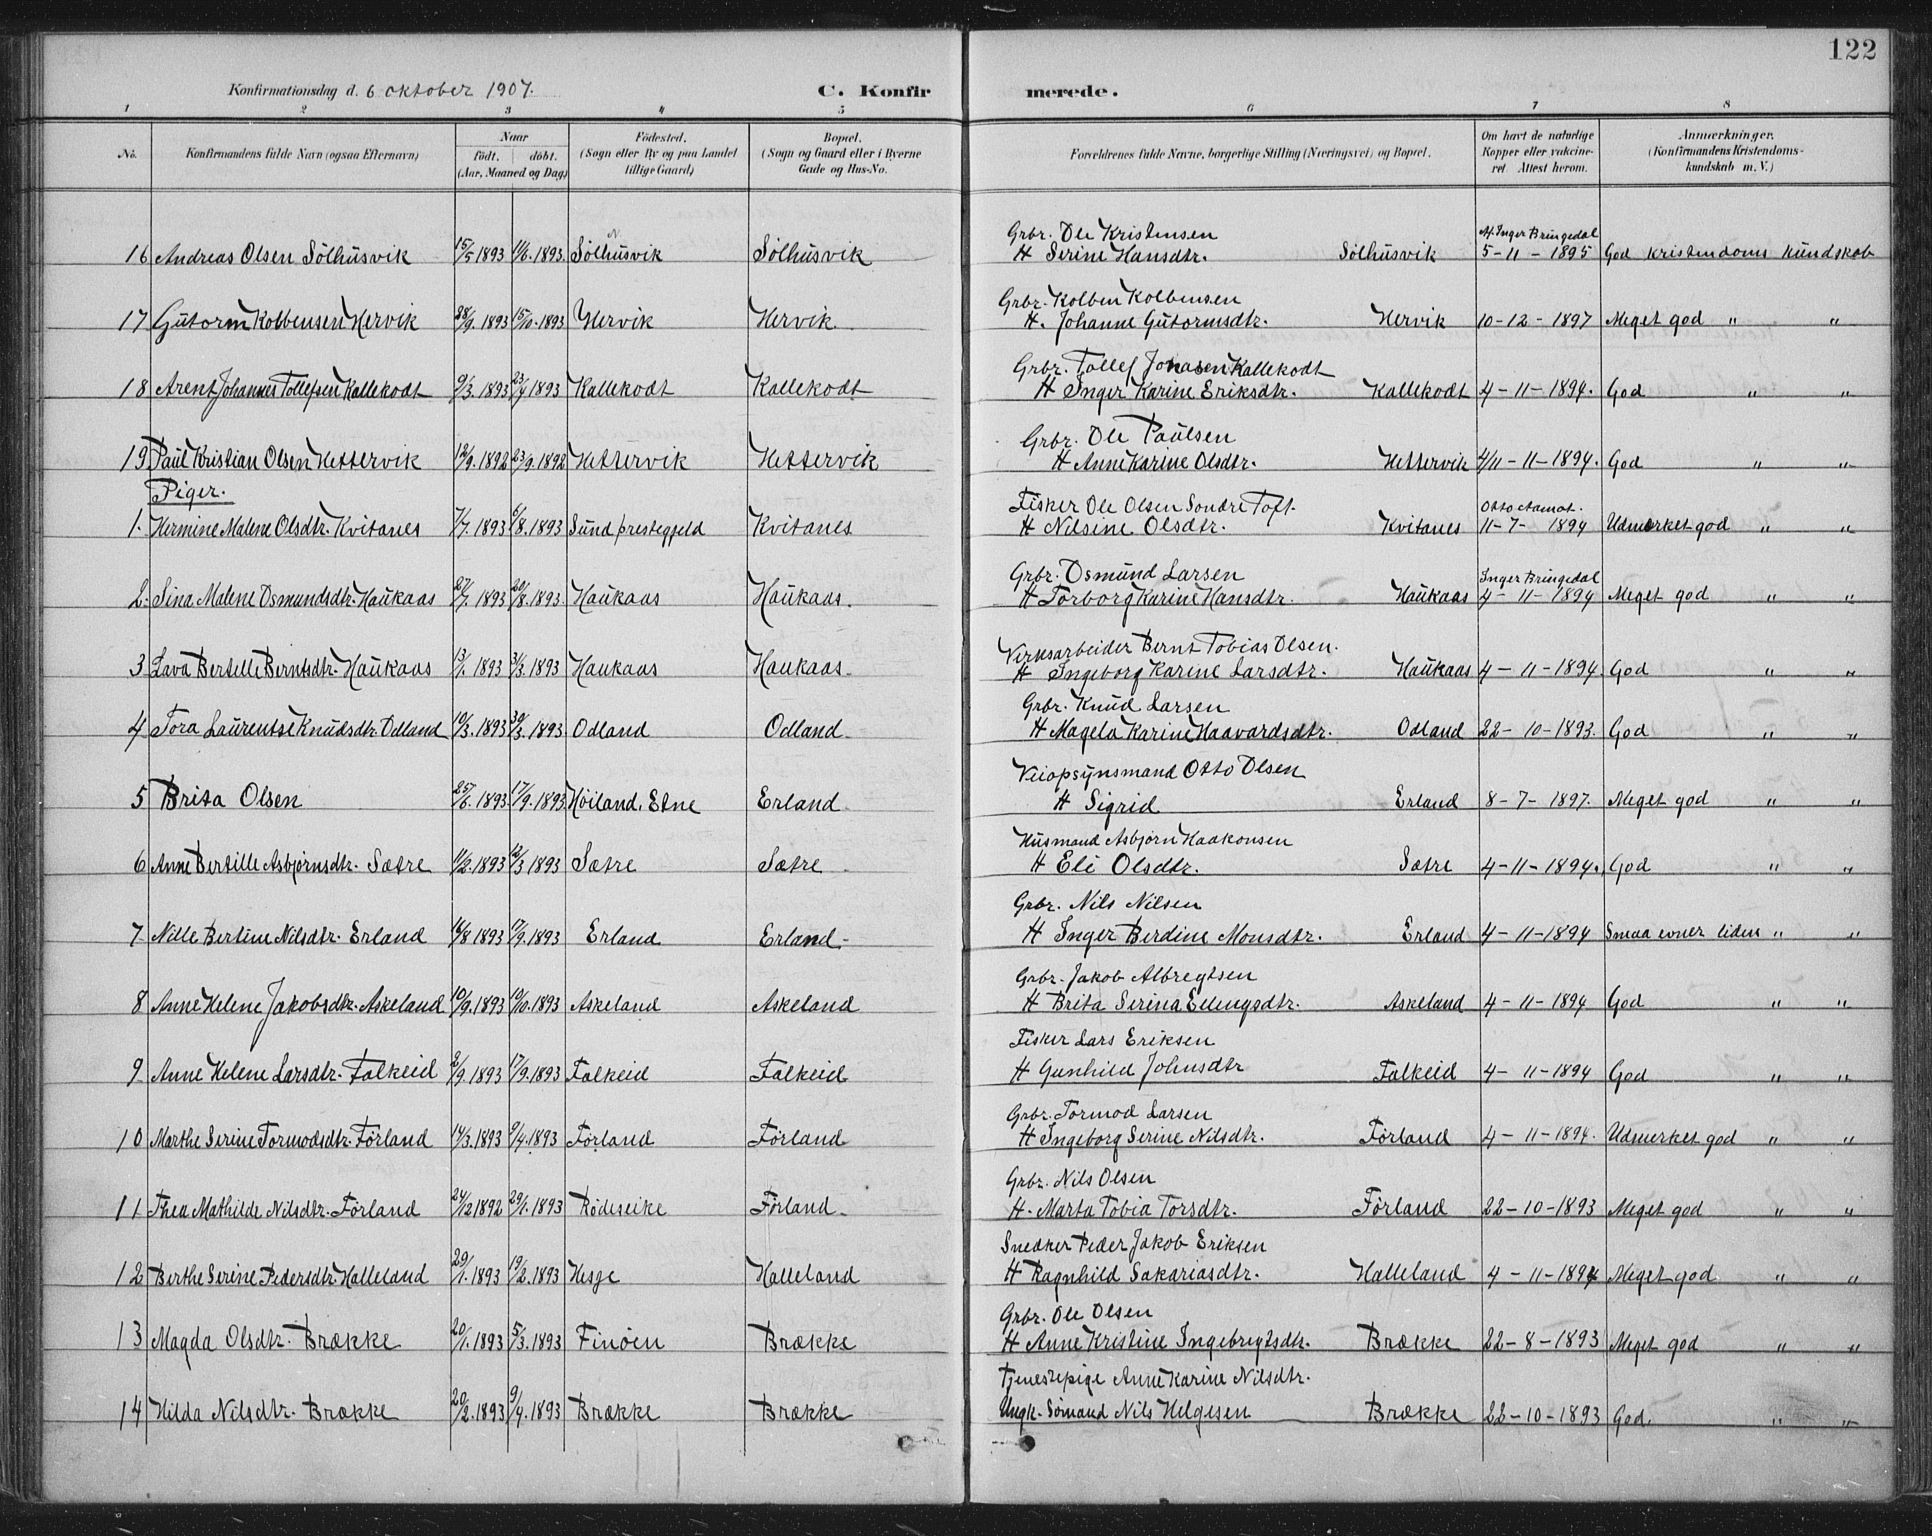 122
Konfirmationsdag d. 6 oktober 1907.
C. Konfirmerede.
1 2 3 4 5 6 7 8
No.
Konfirmandens fulde Navn (ogsaa Efternavn)
Naar
födt. döbt.
(Aar, Maaned og Dag)
Födested.
(Sogn eller By og paa Landet
tillige Gaard)
Bopæl.
(Sogn og Gaard eller i Byerne
Gade og Hus-No.
Forældrenes fulde Navne, borgerlige Stilling (Næringsvei) og Bopæl.
Om havt de naturlige
Kopper eller vakcine-
ret. Attest herom.
Anmærkninger.
(Konfirmandens Kristendoms-
kundskab m. V.)
Grbr. Ole Kristensen
At. Inger Bringedal
16 Andreas Olsen Sølhusvik 15/5 1893 11/6. 1893. Sølhusvik Sølhusvik H Serine Hansdtr. Sølhusvik 5-11-1895 God Kristendoms Kundskab
Grbr. Kolben Kolbensen
17 Gutorm Kolbensen Hervik 28/9. 1893 15/10. 1893 Hervik Hervik H. Johanne Gutormsdtr. Hervik 10-12-1897 Meget god " "
Grbr. Tollef Jonasen Kallekodt
18 Arent Johannes Tollefsen Kallekodt 9/3. 1893 23/4 1893 Kallekodt Kallekodt H Inger Karine Eriksdtr. Kallekodt 4-11-1894. God " "
Grbr. Ole Paulsen
19 Paul Kristian Olsen Hettervik 12/9. 1892 23/9. 1892 Hettervik Hettervik H Anne Karine Olsdtr. Hettervik 4/11-11-1894. God " "
Piger.
Fisker Ole Olsen Sondre Toft.
Otto Aamot.
1. Hermine Malene Olsdtr. Kvitanes 7/7. 1893 6/8. 1893. Sund præstegjeld Kvitanes H Nilsine Olsdtr. Kvitanes 11-7-1894 Udmerket god " "
Grbr. Osmund Larsen
Inger Bringedal
2. Sina Malene Osmundsdtr. Haukaas 27/7. 1893 20/8. 1893. Haukaas Haukaas. H Torborg Karine Hansdtr. Haukaas 4-11-1894 Meget god " "
Verksarbeider Bernt Tobias Olsen.
3 Lava Bertille Berntsdtr. Haukaas 13/1. 1893 31/3. 1893 Haukaas Haukaas. H Ingeborg Karine Larsdtr. Haukaas 4-11-1894. God " "
Grbr. Knud Larsen
4 Tora Laurentse Knudsdtr. Odland 10/3. 1893 30/3. 1893. Odland Odland H Magela Karine Haavardsdtr. Odland 22-10-1893. God " "
Veiopsynsmand Otto Olsen
5 Brita Olsen 25/6. 1893. 17/9. 1893. Høiland, Etne Erland H Sigrid Erland 8-7-1897. Meget god " "
Husmand Asbjørn Haakonsen
6 Anne Bertille Asbjørnsdtr. Sætre 11/2. 1893 12/3 1893 Sætre Sætre H Eli Olsdtr. Sætre 4-11-1894. God " "
Grbr. Nils Nilsen
7 Nille Bertine Nilsdtr. Erland 16/8. 1893 17/9. 1893 Erland Erland H Inger Berdine Monsdtr. Erland 4-11-1894 Smaa evner liden " "
Grbr. Jakob Albregtsen
8 Anne Helene Jakobsdtr. Askeland 10/9. 1893 19/10. 1893 Askeland Askeland H Brita Serina Ellengsdtr. Askeland 4-11-1894 God " "
Fisker Lars Eriksen
9 Anne Helene Larsdtr. Falkeid 2/9. 1893 17/9. 1893 Falkeid Falkeid H Gunhild Johnsdtr Falkeid 4-11-1894 God " "
Grbr. Tormod Larsen
10 Marthe Serine Tormodsdtr. Førland 14/3. 1893 9/4. 1893 Førland Førland H Ingeborg Serine Nilsdtr. Førland 4-11-1894. Udmerket god " "
Grbr. Nils Olsen
11 Thea Mathilde Nilsdtr. Førland 24/12 1892 29/1. 1893 Rødeseike Førland H. Marta Tobia Torsdtr. Førland 22-10-1893 Meget god " "
Snedker Peder Jakob Eriksen
12 Berthe Serine Pedersdtr. Halleland 29/1. 1893 19/2. 1893 Hesge Halleland H Ragnhild Sakariasdtr. Halleland 4-11-1894 Meget god " "
Grbr. Ole Olsen
13 Magda Olsdtr. Brække 20/1. 1893 5/3. 1893 Finøen Brække H Anne Kristine Ingebregtsdtr. Brække 22-8-1893 Meget god " "
Tjenestepige Anne Karine Nilsdtr.
14 Hilda Nilsdtr. Brække 20/2. 1893 9/4. 1893 Brække Brække Ungk. Sømand Nils Helgesen Brække 22-10-1893 God. " "